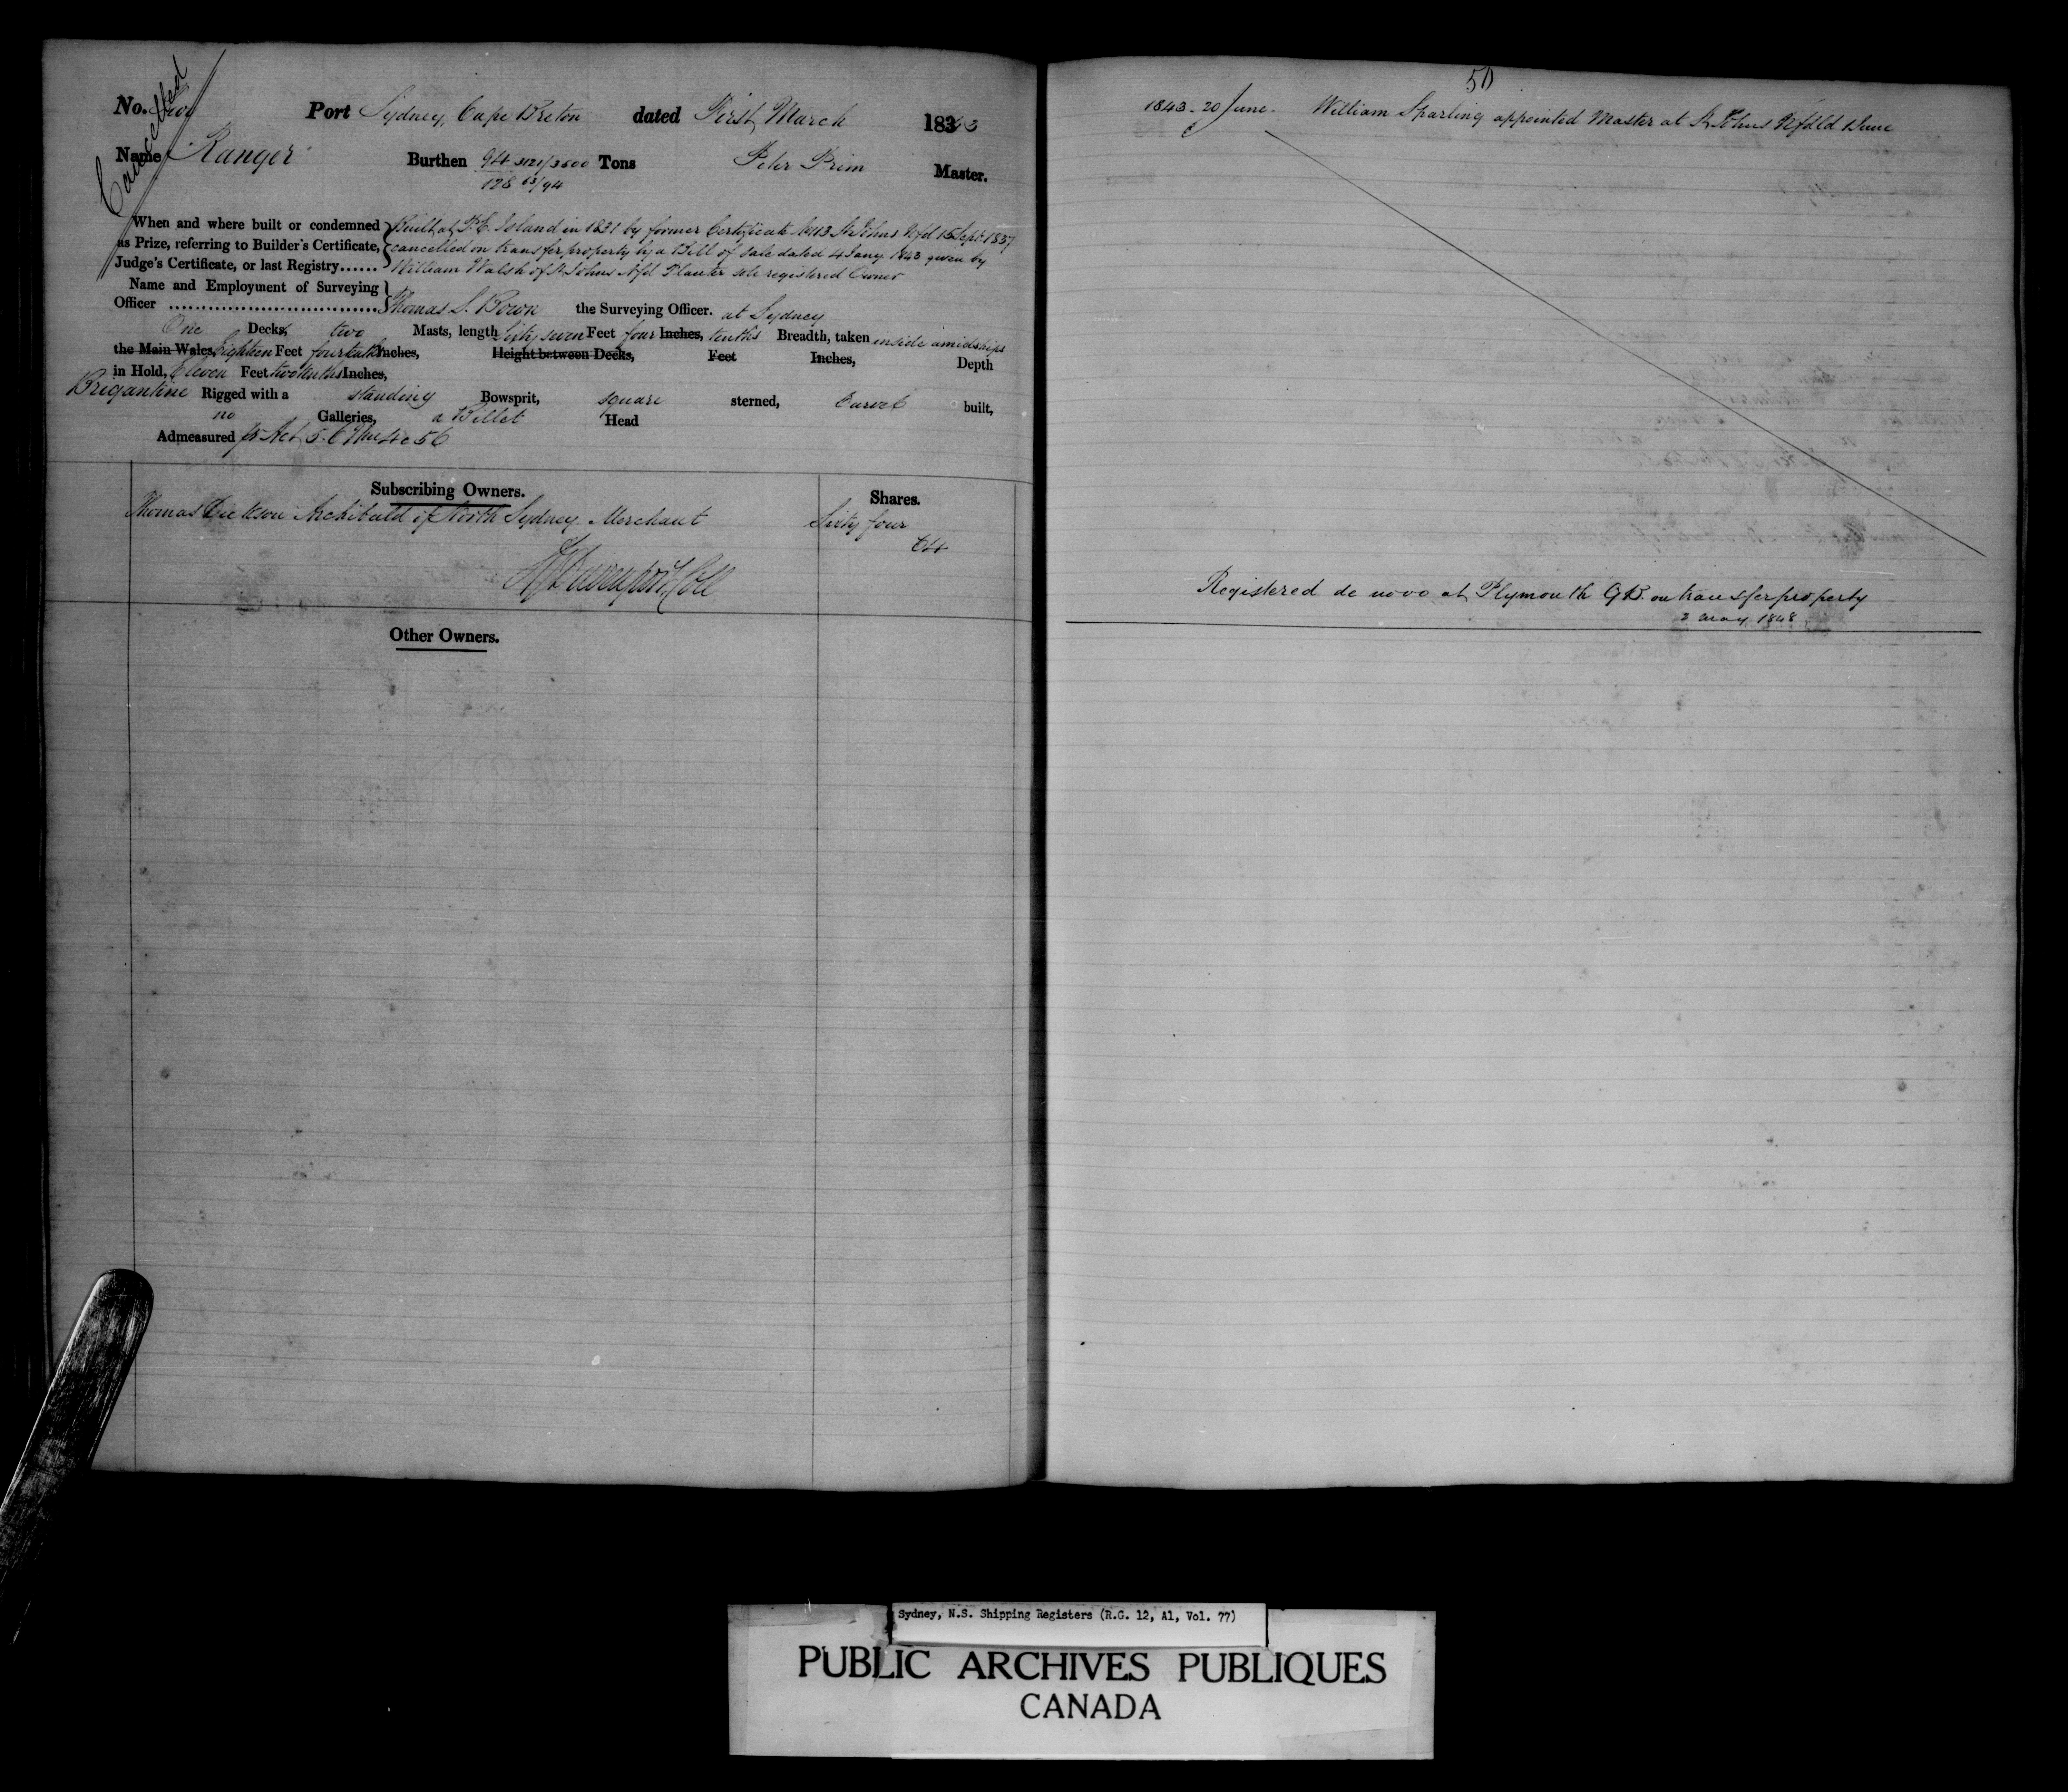 Cancelled
No. Two Port Sydney, Cape Breton dated First March 1843
Name "Ranger" Burthen 94 3121/3500 Tons Peter Prim Master.
128 63/94
When and where built or condemned as Prize, referring to Builder's Certificate, Judge's Certificate, or last Registry......
Built at P. E. Island in 1831 by former Certificate No 13 St Johns Nfd 15 Sept 1837
cancelled on transfer property by a Bill of Sale dated 4 Jany 1843 given by
William Walsh of St Johns Nfd Planter sole registered Owner
Name and Employment of Surveying
Officer Thomas S. Bown the Surveying Officer. at Sydney
One Decks, two Masts, length Sixty seven Feet four Inches, tenths Breadth, taken inside amidships
the Main Wales, Eighteen Feet four tenths Inches, Height between Decks, Feet Inches, Depth
in Hold, Eleven Feet two tenths Inches,
Brigantine Rigged with a standing Bowsprit, square sterned, Carvel built,
no Galleries, a Billet Head
Admeasured pr Act 5. 6 Wm 4 c 56
Subscribing Owners. Shares.
Thomas Dickson Archibald of North Sydney Merchant Sixty four
64
Davenport Coll
Other Owners.
50
1843 - 20 June - William Sparling appointed Master at St Johns Nfdld June
Registered de novo at Plymouth G B. on transfer property
2 May 1848
Sydney, N.S. Shipping Registers (R.G. 12, A1, Vol. 77)
PUBLIC ARCHIVES PUBLIQUES
CANADA